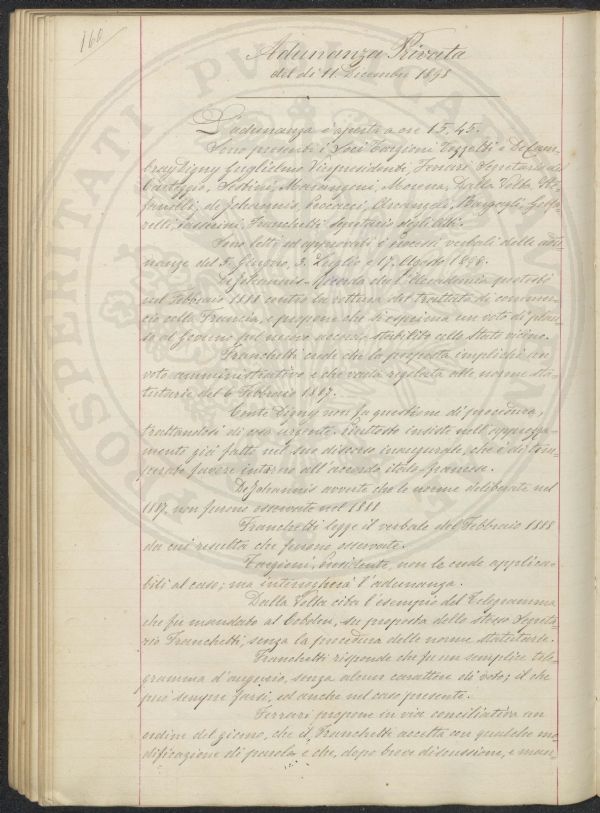 160
Adunanza Privata
del dì 11 Decembre 1898
L'adunanza è aperta a ore 15,45.
Sono presenti i Soci Targioni Tozzetti e De Cam-
bray Digny Guglielmo Vicepresidenti, Ferrari Segretario del
Carteggio, Sestini, Marangoni, Morena, Dalla Volta, Ste-
fanelli, de Johannis, Arcangeli, Bargagli,
Passerini, Franchetti Segretario degli Atti.
Sono letti ed approvati i processi verbali delle adu-
nanze del 5 Giugno, 3 Luglio e 17 Agosto 1898.
De Johannis ricorda che l'Accademia protestò
nel Febbraio 1888 contro la rottura del trattato di commer-
cio colla Francia, e propone che si esprima un voto di plau-
so al Governo pel nuovo accordo stabilito collo Stato vicino.
Franchetti crede che la proposta implichi un
voto amministrativo e che vada regolata alle norme sta-
tutarie del 6 Febbraio 1887.
Conte Digny non fa questione di procedura,
trattandosi di caso urgente. Piuttosto insiste nell'apprezza-
mento già fatto nel suo discorso inaugurale, che è di
favore intorno all'accordo italo-francese.
De Johannis avverte che le norme deliberate nel
1887 non furono osservate nel 1888.
Franchetti legge il verbale del Febbraio 1888
da cui risulta che furono osservate.
Targioni, Presidente, non le crede applica-
bili al caso; ma interrogherà l'adunanza.
Dalla Volta cita l'esempio del Telegramma
che fu mandato al Cobden, su proposta dello stesso Segreta-
rio Franchetti, senza la procedura delle norme statutarie.
Franchetti risponde che fu un semplice tele-
gramma d'augurio, senza alcun carattere di voto; il che
può sempre farsi, ed anche nel caso presente.
Ferrari propone in via conciliativa un
ordine del giorno, che il Franchetti accetta con qualche mo-
dificazione di parola e che, dopo breve discussione, è man-
PROSPERITATI PUBLICAE AUGENDAE